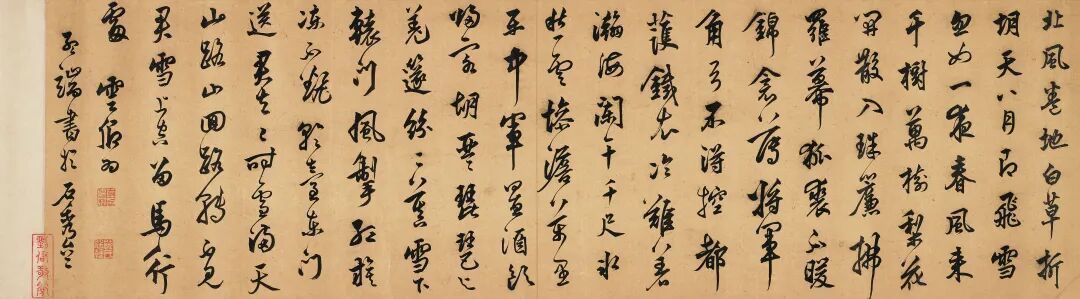 北風卷地白草折
胡天八月即飛雪
忽如一夜春風來
千樹萬樹梨花
開散入珠簾拂
羅幕狐裘不暖
錦衾薄將軍
角弓不得控都
護鐵衣冷難着
瀚海闌干千尺冰
愁雲慘澹萬里
凝中軍置酒飲
歸客胡琴琵琶與
羌笛紛紛暮雪下
轅門風掣紅旗
凍不翻輪臺東門
送君去去時雪滿天
山路山回路轉不見
君雪上空留馬行
處 雲卿為
孟端書於石秀齋